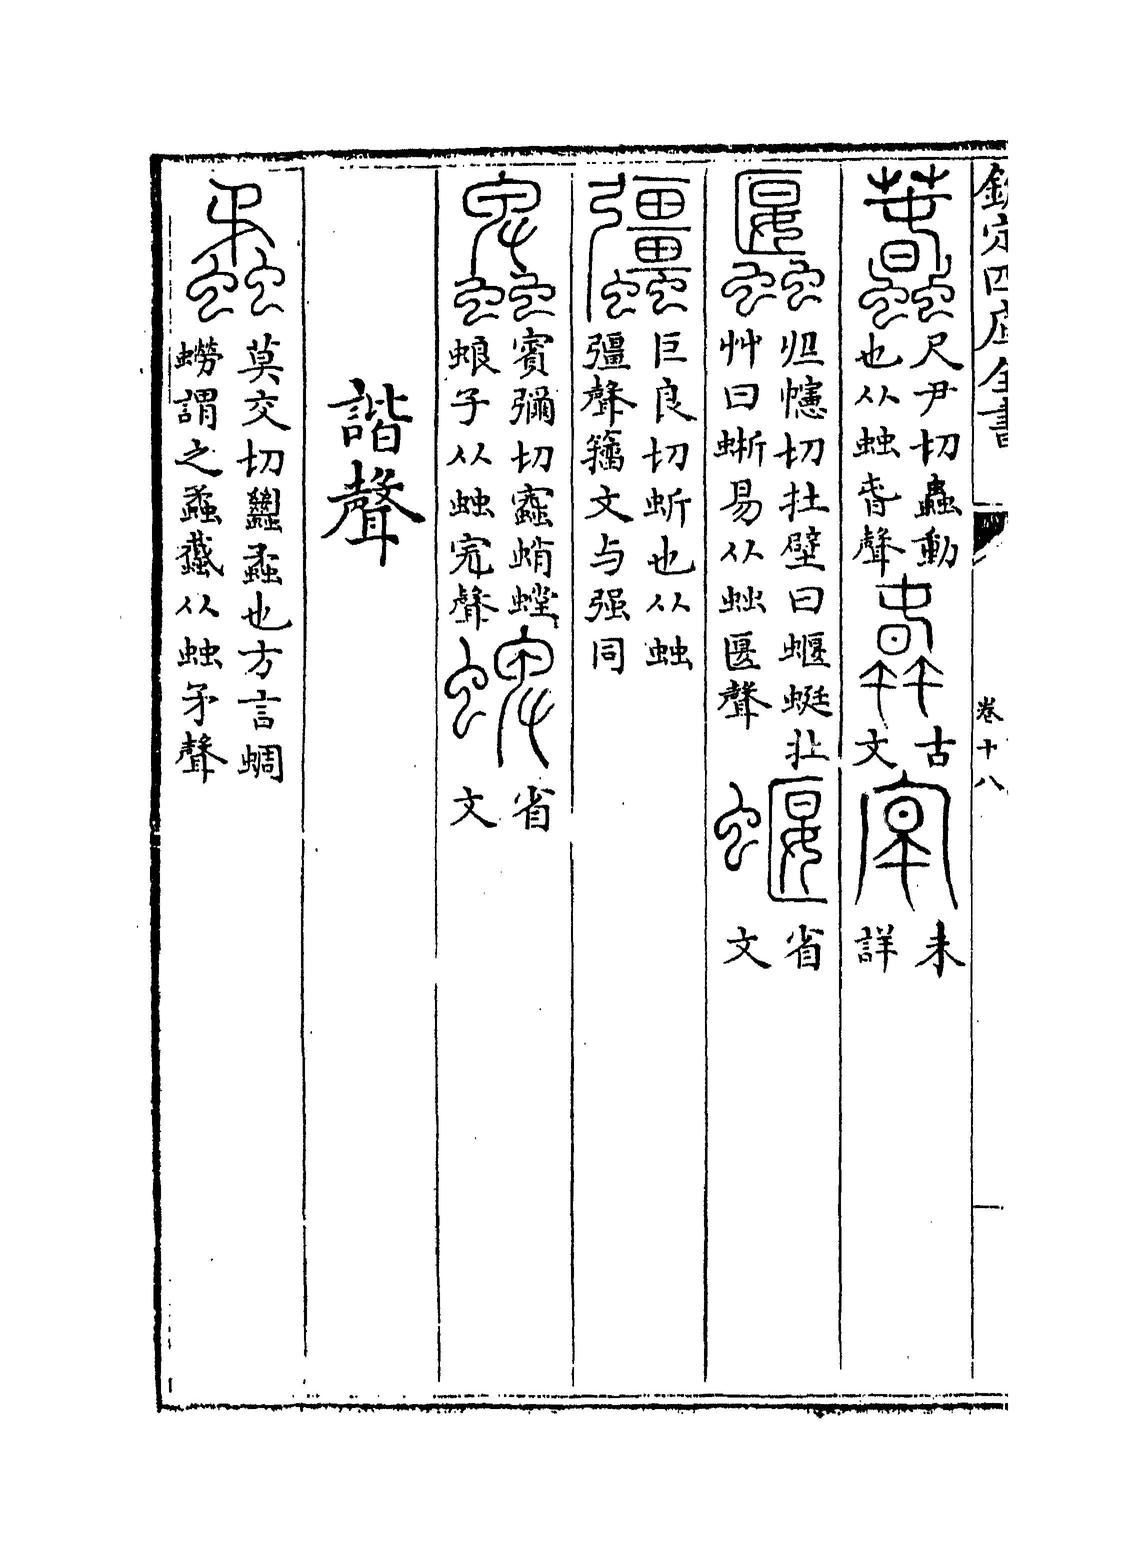 欽定四庫全書 卷十八
蠢 尺尹切蟲動
也从䖵春聲
古
文
未
詳
幰切在壁曰蝘蜓在
艸曰蜥易从䖵匽聲
蝘 省
文
巨良切蚚也从䖵
彊聲籀文与强同
賓彌切蛸螳
蜋子从䖵聲
省
文
諧聲
蟊 莫交切蠿蟊也方言蜩
蟧謂之蟊蠽从䖵矛聲